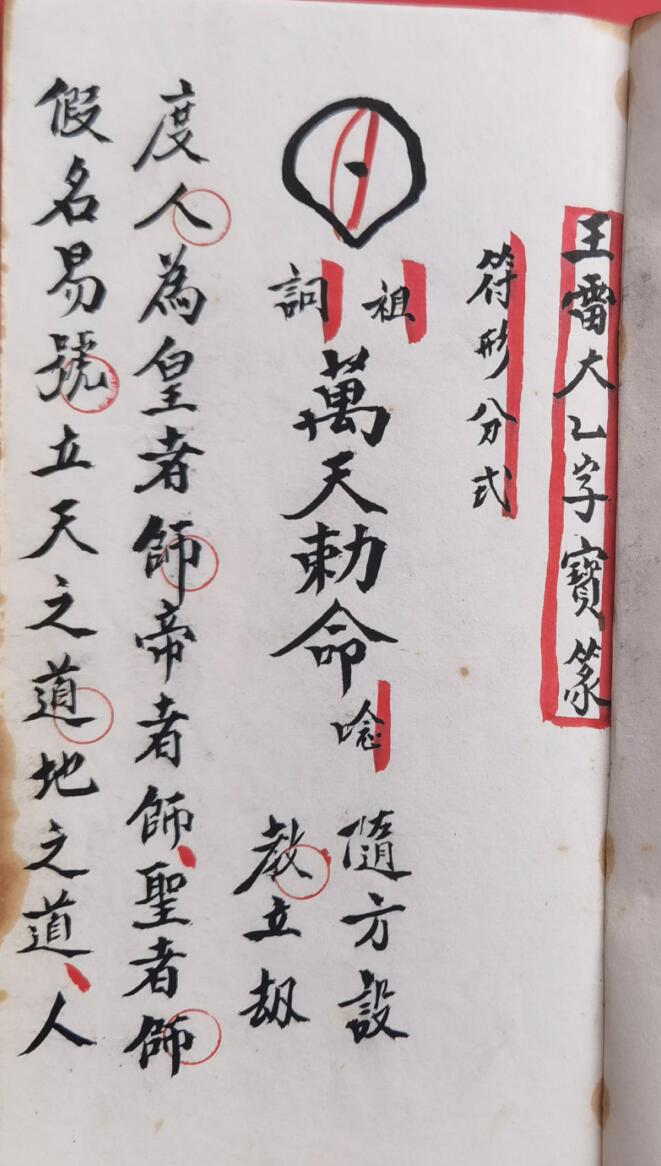 王雷大乙字寶篆
符形分式
祖
詞
萬天勅命
唸
隨方設
教立劫
度人為皇者師帝者師聖者師
假名易號立天之道地之道人